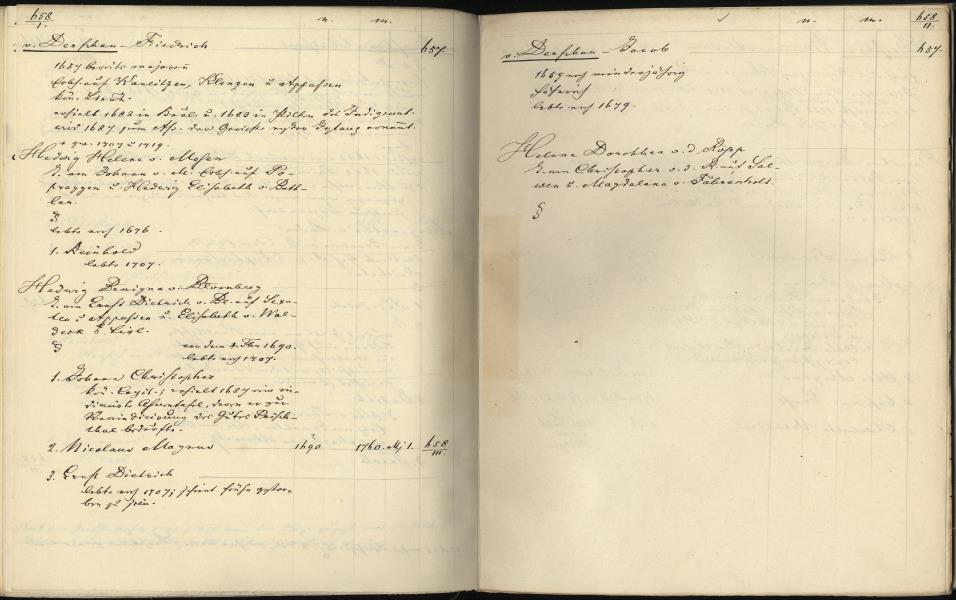 658
I.
n. m.
v. Derschau – Friedrich 657.
1657 bereits majorenn
Erbh. auf Kaulitzen, Klengen u Appussen
kön. Lieut.
erhielt 1682 in Kurl. u. 1683 in Pilten das Indigenat.
wird 1687 zum Ass. des Gerichts ernannt.
+ zw. 1707 u 1719.
Hedwig Helene v. Mosen
T. von Johann v. M. Erbh. auf Po-
praggen u. Hedwig Elisabeth v. Butt-
lar.
§
lebte noch 1676.
1. Reinhold
lebte 1707.
Hedwig Benigna v. Blomberg
T. von Ernst Dietrich v. Bl. auf
ten u Appussen u. Elisabeth v. Wal-
deck
§ vor dem 1690.
lebte noch 1707.
1. Johann Christopher
kön. erhielt 1687 eine
deren er zur
Revindicirung des Gutes
thal bedurfte.
2. Nicolaus Magnus 1690 1760. Mj 1. 658
III.
3. Ernst Dietrich
lebte noch 1707; scheint früh gestor-
ben zu sein.
n. m. 658
II.
v. Derschau – Jacob 657.
1669 noch minderjährig
Fähnrich
lebte noch 1679.
Helene Dorothea v. d. Ropp
T. von Christopher v. d. R. auf Sal-
wen u. Magdalena v. Fahrenholt.
§